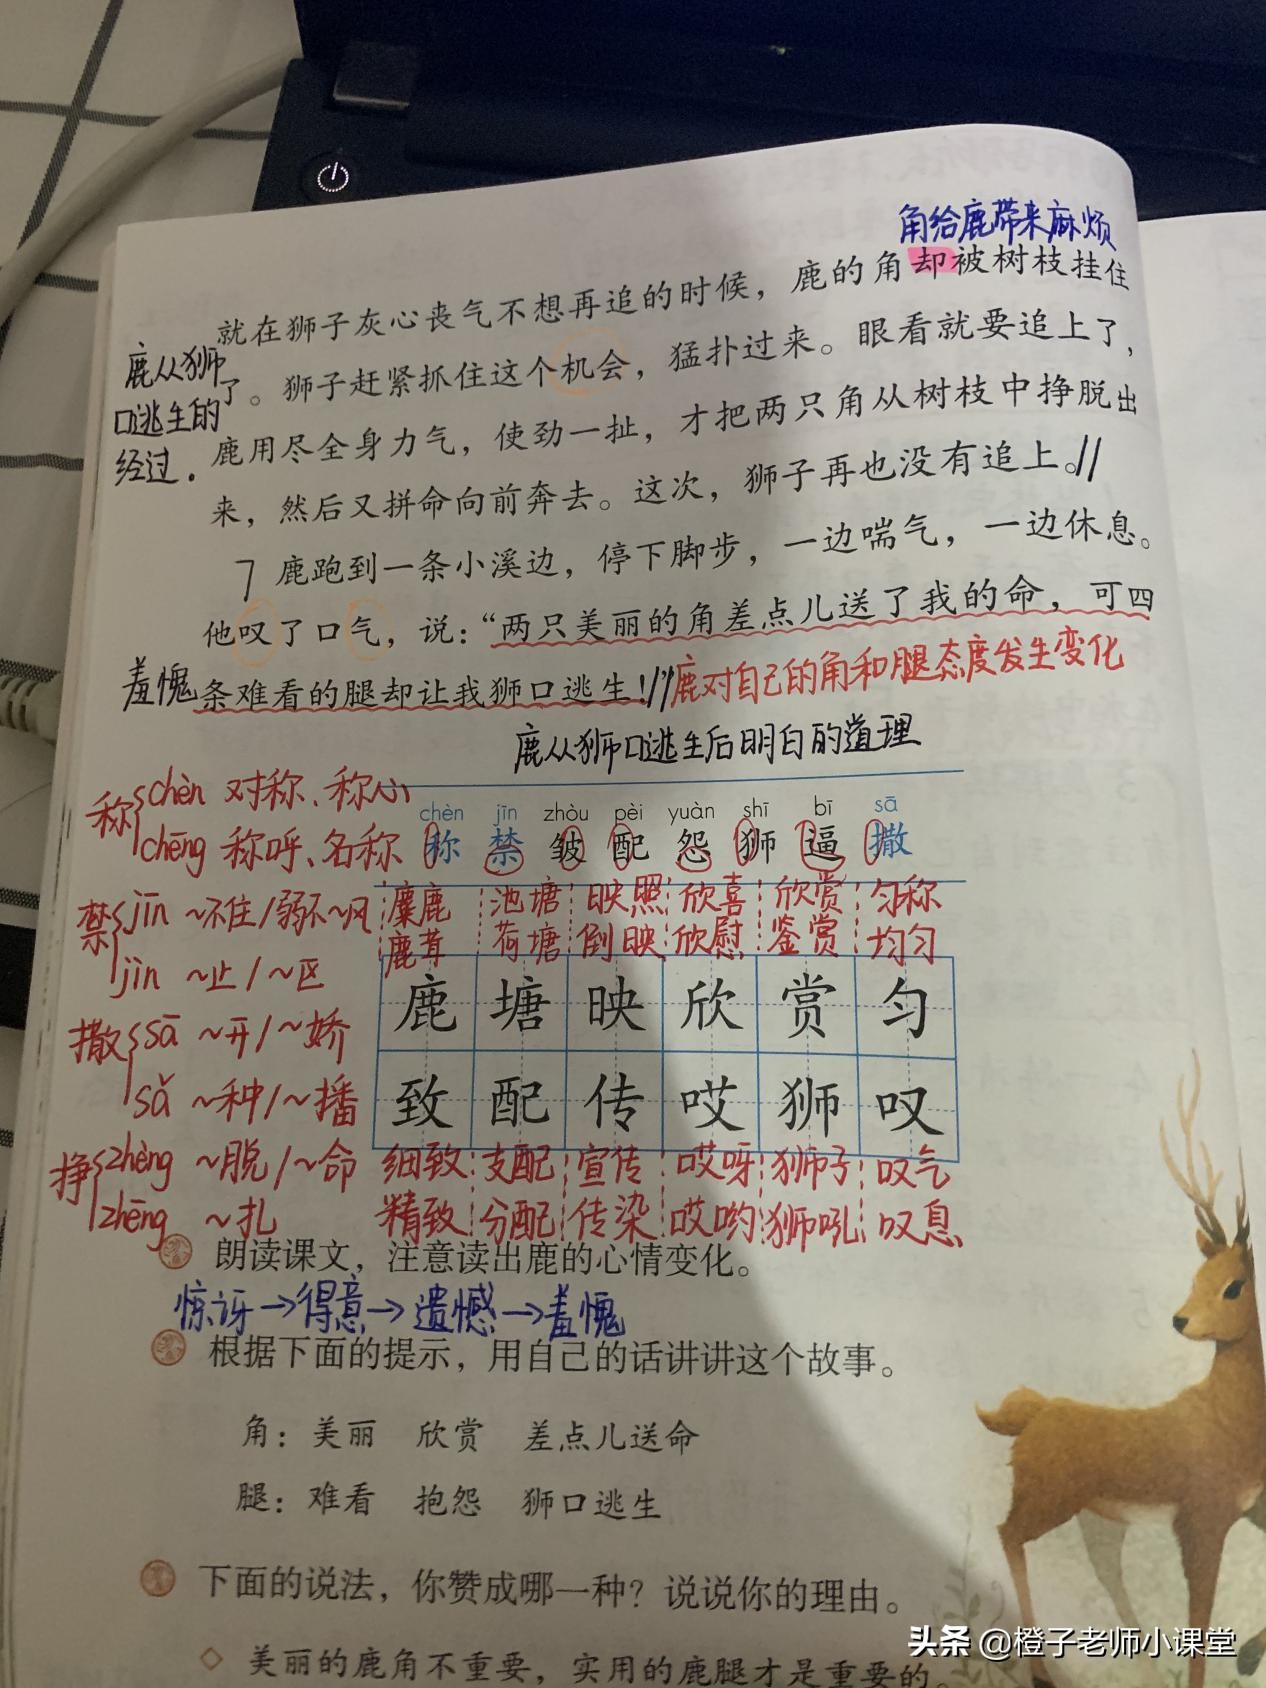 角给鹿带来麻烦
就在狮子灰心丧气不想再追的时候，鹿的角却被树枝挂住
鹿从狮口逃生的经过.
了。狮子赶紧抓住这个机会，猛扑过来。眼看就要追上了，
鹿用尽全身力气，使劲一扯，才把两只角从树枝中挣脱出
来，然后又拼命向前奔去。这次，狮子再也没有追上。//
7 鹿跑到一条小溪边，停下脚步，一边喘气，一边休息。
他叹了口气，说：“两只美丽的角差点儿送了我的命，可四
羞愧 条难看的腿却让我狮口逃生！”// 鹿对自己的角和腿态度发生变化
鹿从狮口逃生后明白的道理
称 chèn 对称、称心
chēng 称呼、名称
chèn jīn zhòu pèi yuàn shī bī sā
称 禁 皱 配 怨 狮 逼 撒
禁 jīn ~不住/弱不~风
jìn ~止/~区
麋鹿 池塘 映照 欣喜 欣赏 匀称
鹿茸 荷塘 倒映 欣慰 鉴赏 均匀
鹿 塘 映 欣 赏 匀
撒 sā ~开/~娇
sǎ ~种/~播
致 配 传 哎 狮 叹
挣 zhèng ~脱/~命
zhēng ~扎
细致 支配 宣传 哎呀 狮子 叹气
精致 分配 传染 哎哟 狮吼 叹息
朗读课文，注意读出鹿的心情变化。
惊讶→得意→遗憾→羞愧
根据下面的提示，用自己的话讲讲这个故事。
角：美丽 欣赏 差点儿送命
腿：难看 抱怨 狮口逃生
下面的说法，你赞成哪一种？说说你的理由。
◇ 美丽的鹿角不重要，实用的鹿腿才是重要的。
头条 @橙子老师小课堂